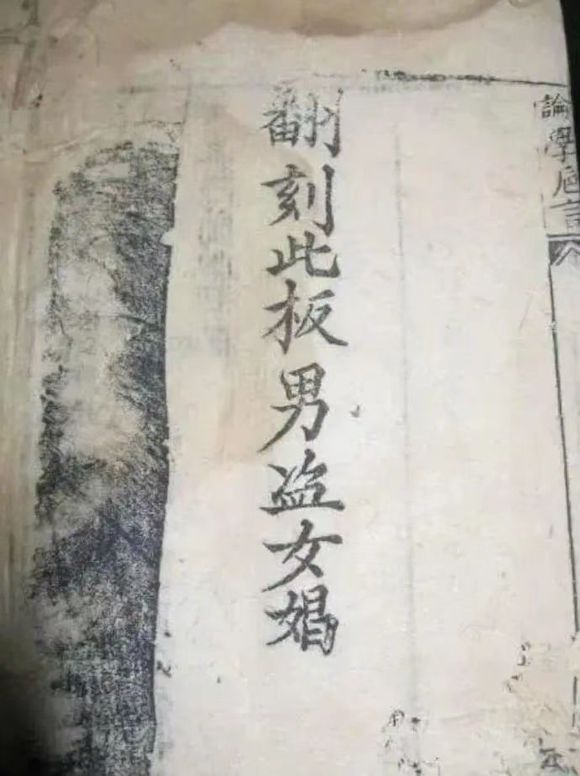 論學卮言
翻刻此板男盗女娼